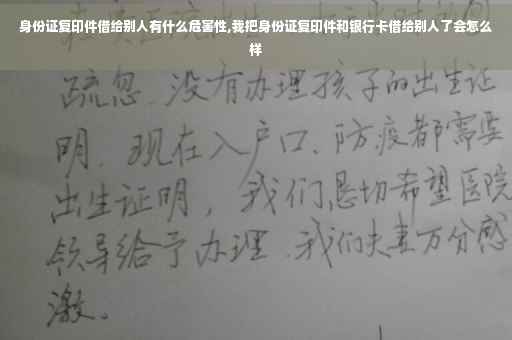 身份证复印件借给别人有什么危害性,我把身份证复印件和银行卡借给别人了会怎么
样
疏忽、没有办理孩子的出生证
明、现在入户口、防疫都需要
出生证明，我们恳切希望医院
领导给予办理、我们夫妻万分感
激。